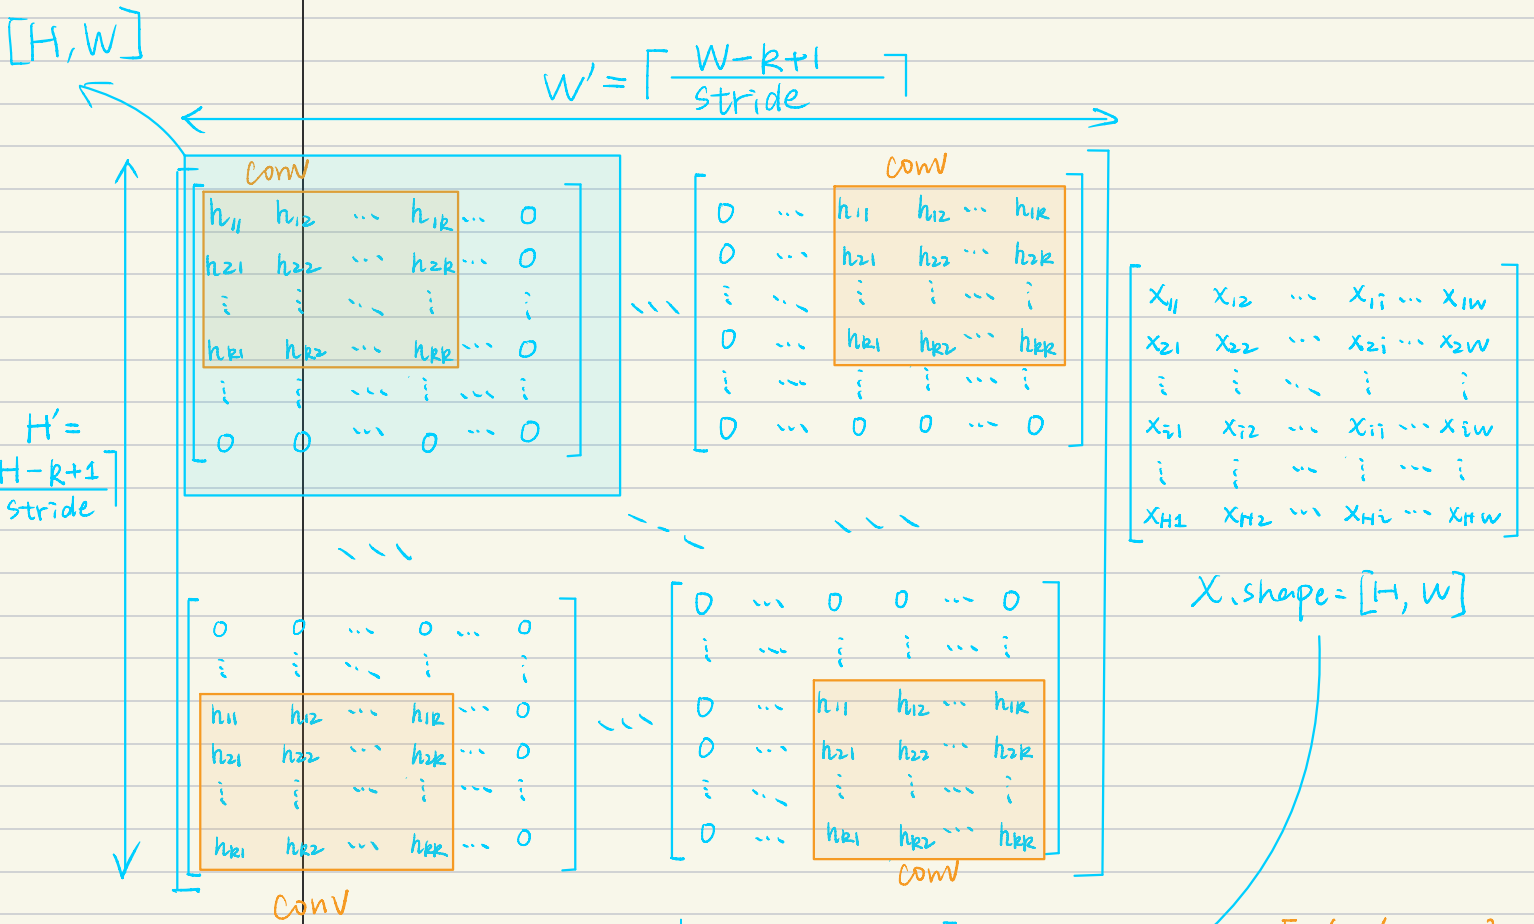 [H, W]
W' = ⌈ (W-k+1) / stride ⌉
conv
conv
h11 h12 ⋯ h1k ⋯ 0
h21 h22 ⋯ h2k ⋯ 0
⋮ ⋮ ⋱ ⋮ ⋮
hk1 hk2 ⋯ hkk ⋯ 0
⋮ ⋮ ⋯ ⋮ ⋯ ⋮
0 0 ⋯ 0 ⋯ 0
⋯
0 ⋯ h11 h12 ⋯ h1k
0 ⋯ h21 h22 ⋯ h2k
⋮ ⋱ ⋮ ⋮ ⋯ ⋮
0 ⋯ hk1 hk2 ⋯ hkk
⋮ ⋯ ⋮ ⋮ ⋯ ⋮
0 ⋯ 0 0 ⋯ 0
x11 x12 ⋯ x1i ⋯ x1w
x21 x22 ⋯ x2i ⋯ x2w
⋮ ⋮ ⋱ ⋮ ⋮
xi1 xi2 ⋯ xii ⋯ xiw
⋮ ⋮ ⋯ ⋮ ⋯ ⋮
xH1 xH2 ⋯ xHi ⋯ xHw
H' =
H-k+1
stride
⋯ ⋱ ⋯
X.shape = [H, W]
0 0 ⋯ 0 ⋯ 0
⋮ ⋮ ⋱ ⋮ ⋮
h11 h12 ⋯ h1k ⋯ 0
h21 h22 ⋯ h2k ⋯ 0
⋮ ⋮ ⋯ ⋮ ⋯ ⋮
hk1 hk2 ⋯ hkk ⋯ 0
⋯
0 ⋯ 0 0 ⋯ 0
⋮ ⋯ ⋮ ⋮ ⋯ ⋮
0 ⋯ h11 h12 ⋯ h1k
0 ⋯ h21 h22 ⋯ h2k
⋮ ⋱ ⋮ ⋮ ⋯ ⋮
0 ⋯ hk1 hk2 ⋯ hkk
conv
conv